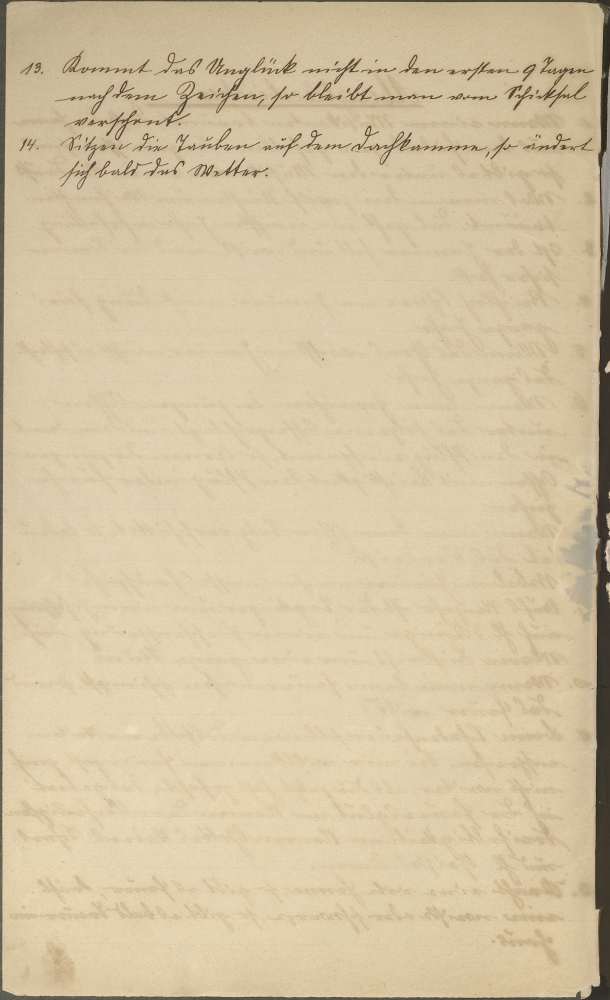 13. Kommt das Unglück nicht in den ersten 9 Tagen
nach dem Zeichen, so bleibt man vom Schicksal
verschont.
14. Sitzen die Tauben auf dem Dachkamme, so ändert
sich bald das Wetter.